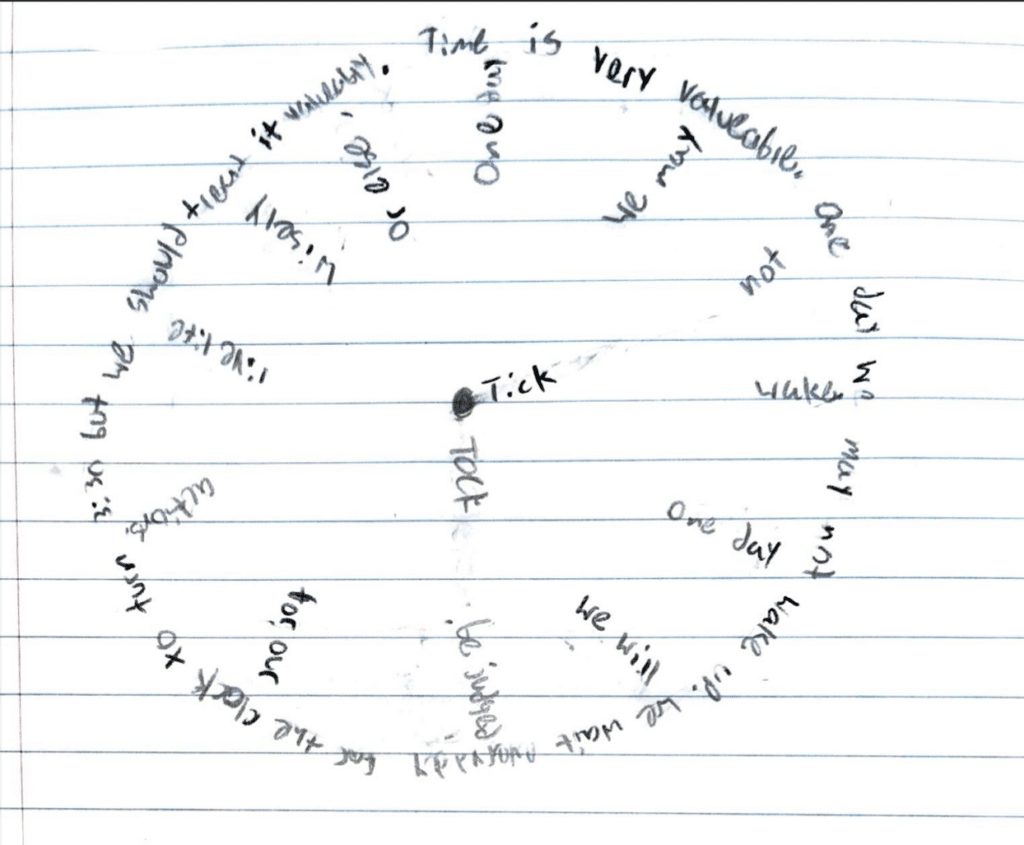 Time is very valueable. One day we may not wake up. We wait everyday for the clock to turn 11:30 but we should treat it valuably.
One day
we may
not
wake
One day
we will
be judged
for our
actions
live life
wisely
or else,
Tick
Tock